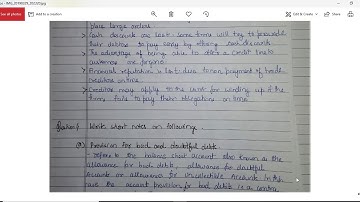 jpg - IMG_20190628_20
See all photos
Add to a creation
Edit & Create
Share
place large orders.
> Cash discount are lost: some firms will try to persuade
their debtors to pay early by offering cash discounts.
> The advantage of being able to offer a credit line to
customers are forgone
> Financial reputation is lost due to non payment of trade
creditors on time.
> Creditors may apply to the court for winding up if the
firm fails to pay their obligations on time.
Question
Write short notes on following.
(a) Provision for bad and doubtful debts:
- refers to the balance sheet account also known as the
allowance for bad debts, allowance for doubtful
accounts or allowance for uncollectible accounts. In this
case the account provision for bad debts is a contra